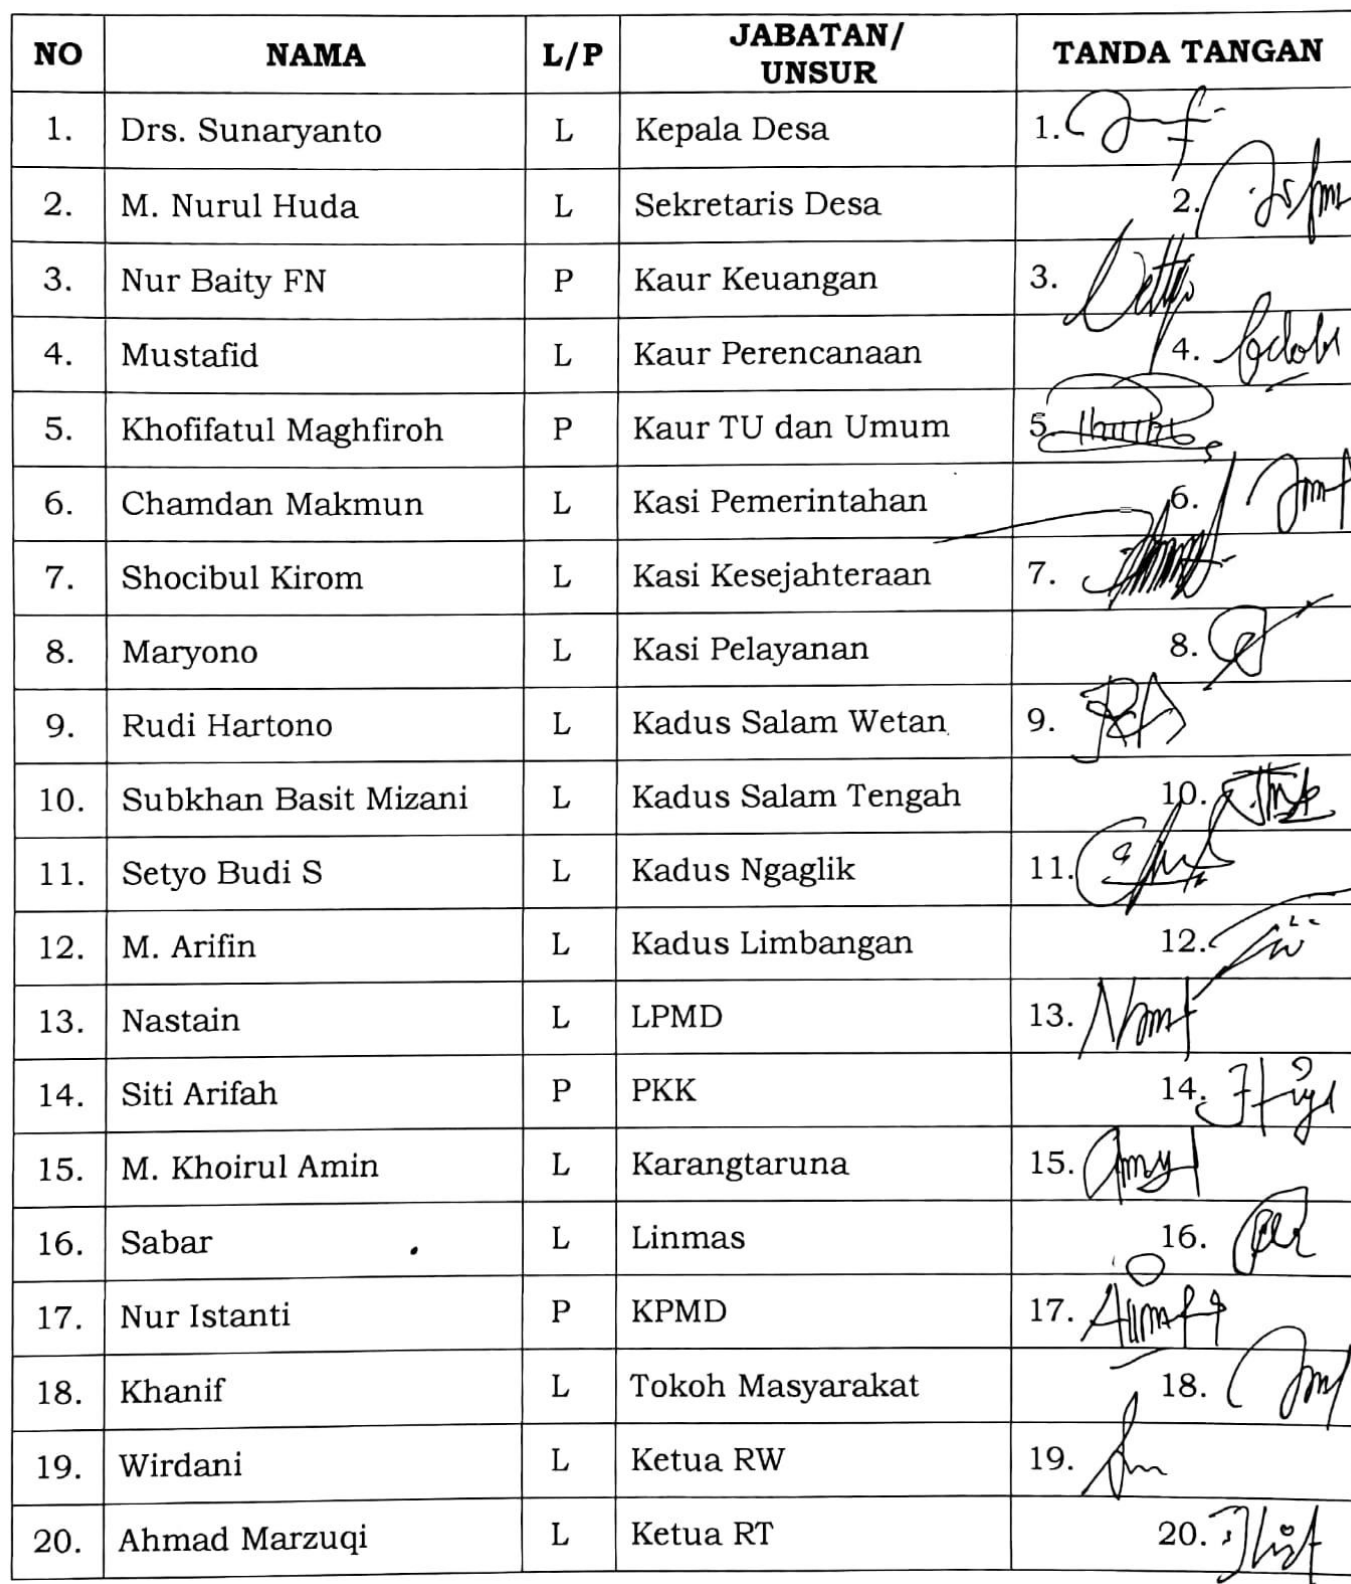 NO NAMA L/P JABATAN/ UNSUR TANDA TANGAN
1. Drs. Sunaryanto L Kepala Desa 1.
2. M. Nurul Huda L Sekretaris Desa 2.
3. Nur Baity FN P Kaur Keuangan 3.
4. Mustafid L Kaur Perencanaan 4.
5. Khofifatul Maghfiroh P Kaur TU dan Umum 5.
6. Chamdan Makmun L Kasi Pemerintahan 6.
7. Shocibul Kirom L Kasi Kesejahteraan 7.
8. Maryono L Kasi Pelayanan 8.
9. Rudi Hartono L Kadus Salam Wetan 9.
10. Subkhan Basit Mizani L Kadus Salam Tengah 10.
11. Setyo Budi S L Kadus Ngaglik 11.
12. M. Arifin L Kadus Limbangan 12.
13. Nastain L LPMD 13.
14. Siti Arifah P PKK 14.
15. M. Khoirul Amin L Karangtaruna 15.
16. Sabar L Linmas 16.
17. Nur Istanti P KPMD 17.
18. Khanif L Tokoh Masyarakat 18.
19. Wirdani L Ketua RW 19.
20. Ahmad Marzuqi L Ketua RT 20.